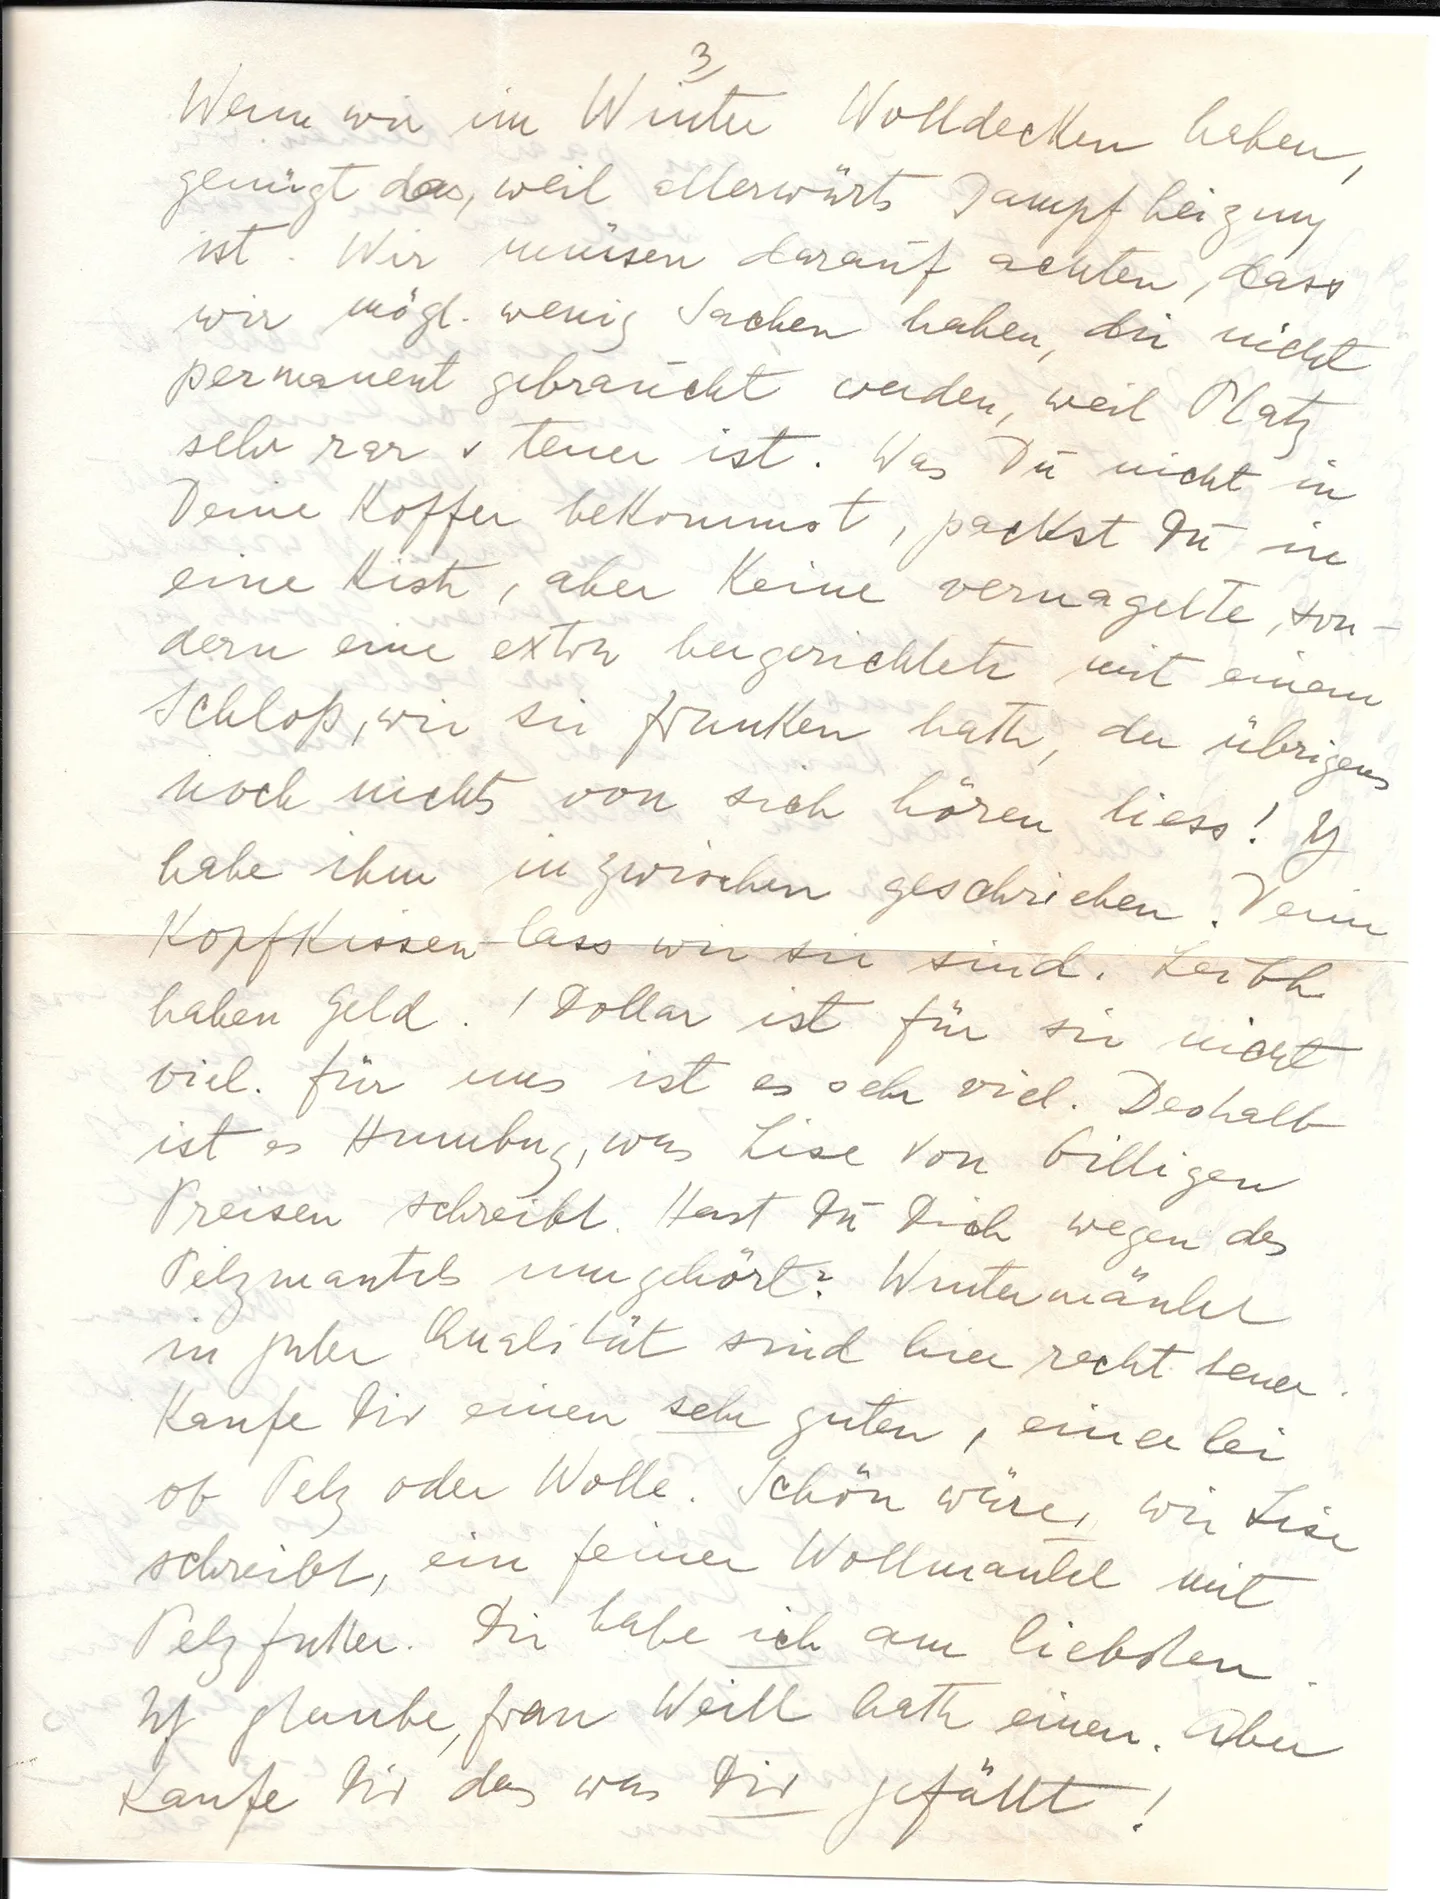 3
Wenn wir im Winter Wolldecken haben,
genügt das, weil allerwärts Dampfheizung
ist. Wir müssen darauf achten, dass
wir mögl. wenig Sachen haben, die nicht
permanent gebraucht werden, weil Platz
sehr rar & teuer ist. Was Du nicht in
Deine Koffer bekommst, packst Du in
eine Kiste, aber keine vernagelte, son-
dern eine extra hergerichtete mit einem
Schloß, wie sie Franken hatte, der übrigens
noch nichts von sich hören liess! Ich
habe ihm inzwischen geschrieben. Deine
Kopfkissen lass wie sie sind.
haben Geld. 1 Dollar ist für sie nicht
viel. Für uns ist es sehr viel. Deshalb
ist es Humbug, was Lise von billigen
Preisen schreibt. Hast Du Dich wegen des
Pelzmantels umgehört? Wintermäntel
in guter Qualität sind hier recht teuer.
Kaufe Dir einen sehr guten, einerlei
ob Pelz oder Wolle. Schön wäre, wie Lise
schreibt, ein feiner Wollmantel mit
Pelzfutter. Die habe ich am liebsten.
Ich glaube, Frau Weill hatte einen. Aber
kaufe Dir das was Dir gefällt!